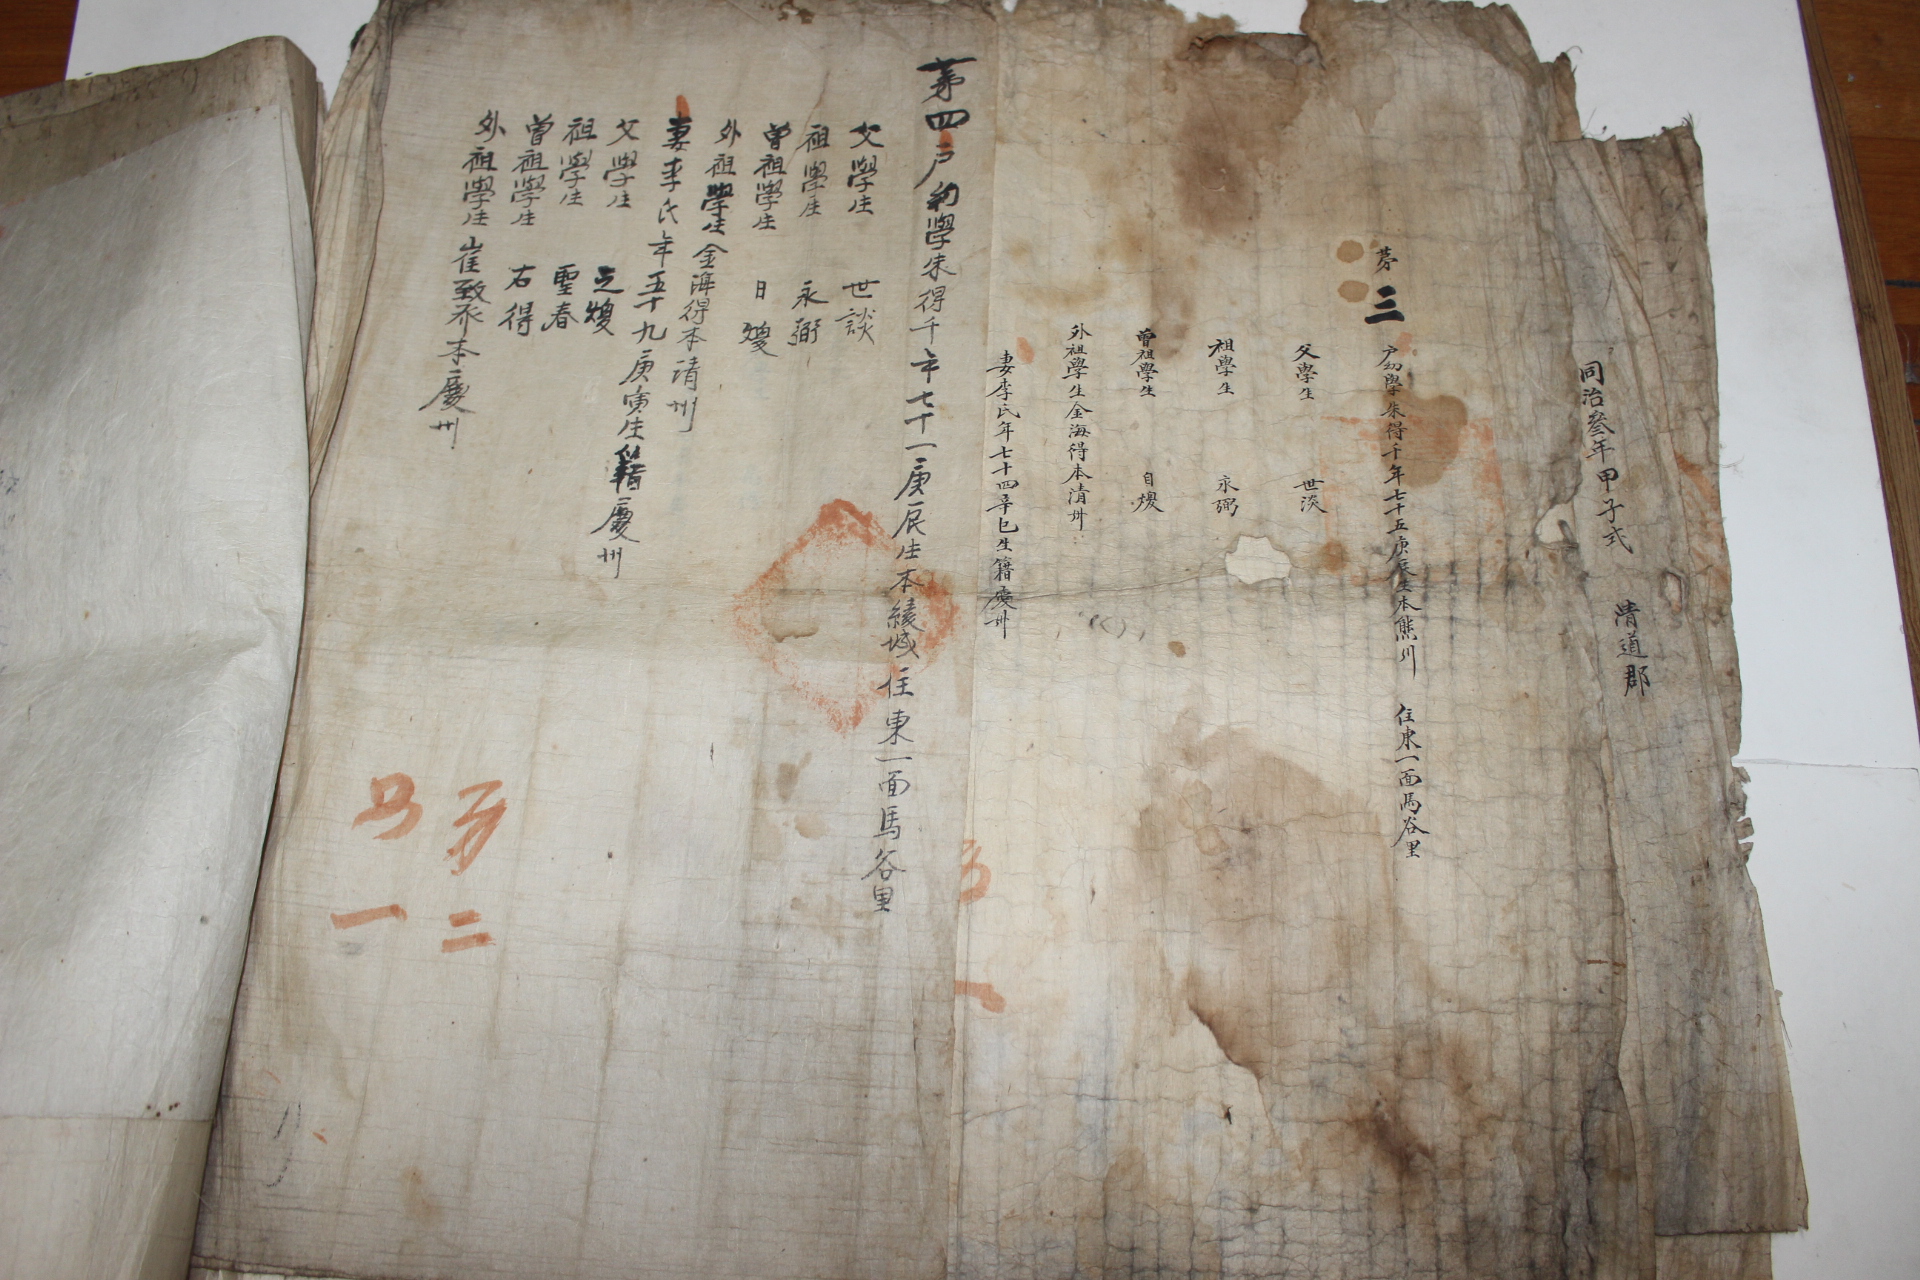 同治叄年甲子式 淸道郡
苐三 戶幼學朱得千年七十五庚辰生本熊川 住東一面馬谷里
父學生 世淡
祖學生 永弼
曾祖學生 自煖
外祖學生金海得本清州
妻李氏年七十四辛巳生籍慶州
苐四戶幼學朱得千年七十一庚辰生本綾城住東一面馬谷里
父學生 世談
祖學生 永弼
曾祖學生 日煖
外祖學生金海得本清州
妻李氏年五十九庚寅生籍慶州
父學生 之煥
祖學生 聖春
曾祖學生 右得
外祖學生崔致丕本慶州
二
一